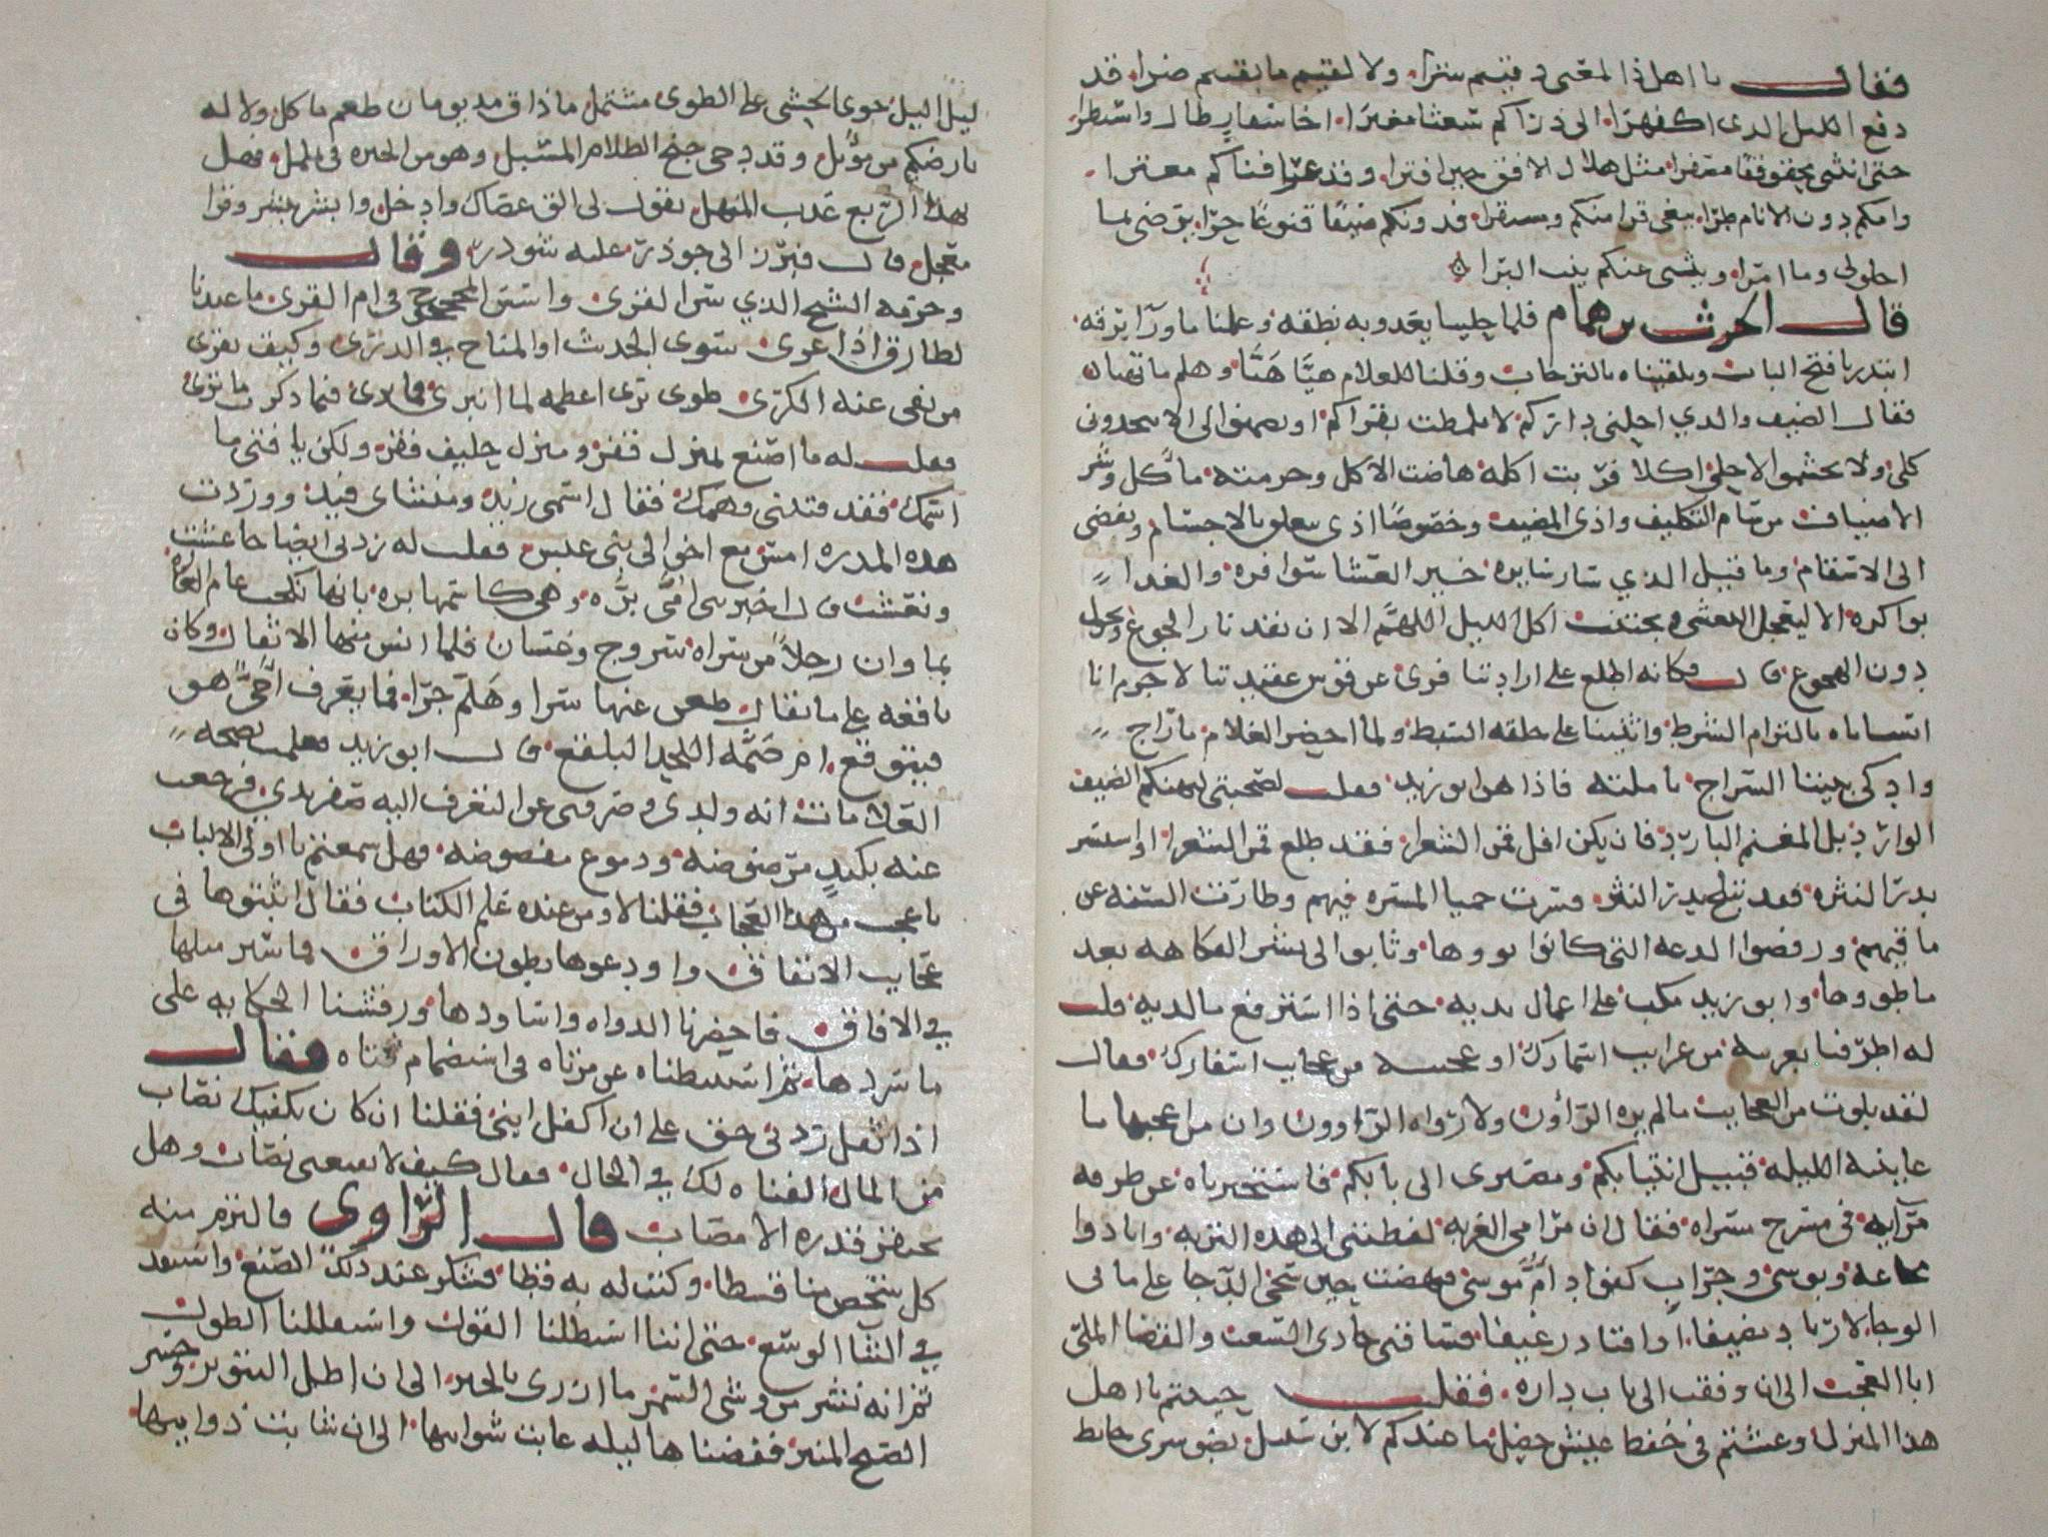 فقال يا اهل ذا المغنى وقيتم شرا ولا لقيتم ما بقيتم ضرا قد
دفع الليل الذي اكفهرا الى ذراكم شعثا مغبرا اخا سفار طال واسبطرا
حتى انثنى محقوقفا مصفرا مثل هلال الافق حين افترا وقد عرا فناكم معترا
وامكم دون الانام طرا يبغي قرا منكم ومستقرا فدونكم ضيفا قنوعا حرا يرضى بما
احلولى وما امرا وينثني عنكم ينث البرا
قال الحرث بن همام فلما خلبنا بعذوبة نطقه وعلمنا ما ورآ برقه
ابتدرنا فتح الباب وتلقيناه بالترحاب وقلنا للغلام هيا هيا وهلم ما تهيا
فقال الضيف والذي احلني ذراكم لا تلمظت بقراكم او تضمنوا الى الا تتخذوني
كلا ولا تجشموا لاجلي اكلا فرب اكلة هاضت الاكل وحرمته مآكل وشر
الاضياف من سام التكليف واذى المضيف وخصوصا اذى يعلق بالاجسام ويفضي
الى الاسقام وما قيل الذي سار سايره خير العشا سوافره والغدا
بواكره الا ليعجل التعشي ويجتنب اكل الليل اللهم الا ان تقد نار الجوع وتحول
دون الهجوع قال فكانه اطلع على ارادتنا فرمى عن قوس عقيدتنا لا جرم انا
انسناه بالتزام الشرط واثنينا على خلقه السبط ولما احضر الغلام ما راج
واذكى بيننا السراج تاملته فاذا هو ابو زيد فقلت لصحبتي ليهنكم الضيف
الوارد بل المغنم البارد فان يكن افل قمر الشعرا فقد طلع قمر الشعرا او استسر
بدر النثره فقد تبلج بدر النثر فسرت حميا المسره فيهم وطارت السنه عن
ماقيهم ورفضوا الدعه التي كانوا نووها وثابوا الى نشر الفكاهه بعد
ما طووها وابو زيد مكب على اعمال يديه حتى اذا استرفع ما لديه قلت
له اطرفنا بغريبه من غرايب اسمارك او عجيبه من عجايب اسفارك فقال
لقد بلوت من العجايب ما لم يره الرآؤن ولا رواه الراوون وان من اعجبها ما
عاينته الليله قبيل انتيابكم ومصيرى الى بابكم فاستخبرناه عن طرفه
مرآيه في مسرح مسراه فقال ان مرامي الغربه لفظتني الى هذه التربه وانا ذوا
مجاعه وبوسى وجراب كفواد ام موسى فنهضت حين سجى الدجا على ما بي
الوجا لارتاد مضيفا او اقتاد رغيفا فساقني حادي السغب والقضا المكنى
ابا العجب الى ان وقفت الى باب داره فقلت حييتم يا اهل
هذا المنزل وعشتم في خفض عيش خضل ما عندكم لابن سبيل مرمل نضو سرى خابط
ليل اليل جوى الحشى على الطوى مشتمل ما ذاق مذ يومان طعم ماكل ولا له
بارضكم من موئل وقد دجى جنح الظلام المسبل وهو من الحيره في تململ فهل
بهذا الربع عذب المنهل يقول لى الق عصاك وادخل وابشر ببشر وقرا
معجل قال فبرز الى جوذر عليه شوذر وقال
وحرمة الشيخ الذي سن القرى واسس المحجوج في ام القرى ما عندنا
لطارق اذا عرى سوى الحديث او المناخ في الذرى وكيف يقرى
من نفى عنه الكرى طوى برى اعظمه لما انبرى فما ترى فيما ذكرت ما ترى
فقلت له ما اصنع بمنزل قفر ومنزل حليف فقر ولكن يا فتى ما
اسمك فقد فتنني فهمك فقال اسمي زيد ومنشاى فيد ووردت
هذه المدره امس مع اخوالى بني عبس فقلت له زدنى ايضاحا عشت
ونعشت قال اخبرتنى امى بره وهي كاسمها بره بانها نكحت عام الغاره
بماوان رجلا من سراه سروج وغسان فلما انس منها الاثقال وكان
باقعه على ما يقال ظعن عنها سرا وهلم جرا فما يعرف احي هو
فيتوقع ام ضمه اللحد البلقع قال ابو زيد فعلمت بصحه
العلامات انه ولدي وصرفنى عن التعرف اليه صفر يدي فرجعت
عنه بكبد مرضوضه ودموع مفضوضه فهل سمعتم يا اولى الالباب
باعجب من هذا العجاب فقلنا لا ومن عنده علم الكتاب فقال اثبتوها في
عجايب الاتفاق واودعوها بطون الاوراق فما سير مثلها
في الافاق فاحضرنا الدواه واساودها ورقشنا الحكايه على
ما سردها ثم استبطناه عن مرتاه في استضمام فتاه فقال
اذا ثقل ردنى خف على ان اكفل ابنى فقلنا ان كان يكفيك نصاب
من المال الفناه لك في الحال فقال كيف لا يقنعني نصاب وهل
يحتقر قدره الا مصاب قال الراوى فالتزم منه
كل شخص منا قسطا وكتب له به قطا فشكر عند ذلك الصنع واستنفد
في الثنا الوسع حتى اننا استطلنا القول واستقللنا الطول
ثم انه نشر من وشي السمر ما ازرى بالحبر الى ان اظل التنوير وجشر
الصبح المنير فقضيناها ليله غابت شوايبها الى ان شابت ذوايبها